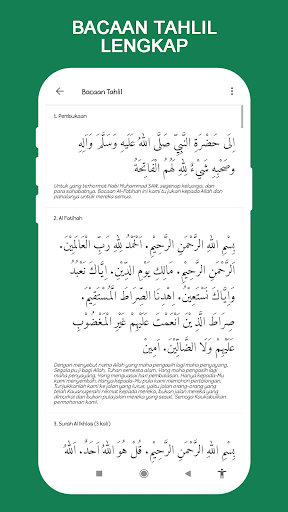 BACAAN TAHLIL
LENGKAP
Bacaan Tahlil
1. Pembukaan
اِلَى حَضْرَةِ النَّبِيِّ صَلَّى اللهُ عَلَيْهِ وَسَلَّمَ وَآلِهِ
وَصَحْبِهِ شَيْءٌ لِلّٰهِ لَهُمُ الْفَاتِحَةُ
Untuk yang terhormat Nabi Muhammad SAW, segenap keluarga, dan
para sahabatnya. Bacaan Al-Fatihah ini kami tujukan kepada Allah dan
pahalanya untuk mereka semua.
2. Al Fatihah
بِسْمِ اللهِ الرَّحْمنِ الرَّحِيْمِ. اَلْحَمْدُ لِلّٰهِ رَبِّ الْعَالَمِيْنَ.
الرَّحْمنِ الرَّحِيْمِ. مَالِكِ يَوْمِ الدِّيْنِ. اِيَّاكَ نَعْبُدُ
وَاِيَّاكَ نَسْتَعِيْنُ. اِهْدِنَا الصِّرَاطَ الْمُسْتَقِيْمَ.
صِرَاطَ الَّذِيْنَ اَنْعَمْتَ عَلَيْهِمْ غَيْرِ الْمَغْضُوْبِ
عَلَيْهِمْ وَلَا الضَّالِّيْنَ. اٰمِيْنَ
Dengan menyebut nama Allah yang maha pengasih lagi maha penyayang.
Segala puji bagi Allah, Tuhan semesta alam. Yang maha pengasih lagi
maha penyayang. Yang menguasai hari pembalasan. Hanya kepada-Mu
kami menyembah. Hanya kepada-Mu pula kami memohon pertolongan.
Tunjukkanlah kami ke jalan yang lurus, yaitu jalan orang-orang yang
telah Kauanugerahi nikmat kepada mereka, bukan jalan mereka yang
dimurkai dan bukan pula jalan mereka yang sesat. Semoga Kaukabulkan
permohonan kami.
3. Surah Al Ikhlas (3 kali)
بِسْمِ اللهِ الرَّحْمنِ الرَّحِيْمِ. قُلْ هُوَ اللهُ اَحَدٌ. اَللهُ